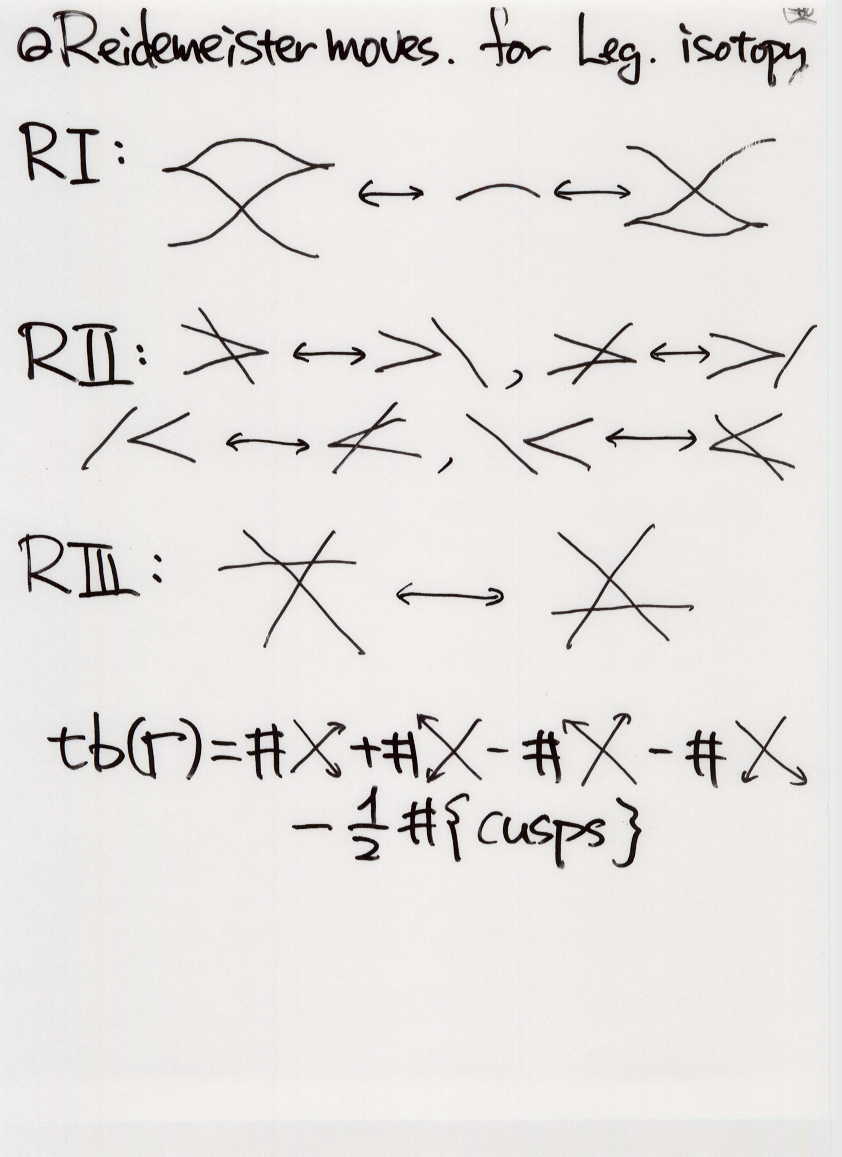 Reidemeister moves. for Leg. isotopy
RI: ↔ ↔
RII: ↔ , ↔
↔ , ↔
RIII: ↔
tb(Γ)=# + # - # - #
- 1/2 #{cusps}